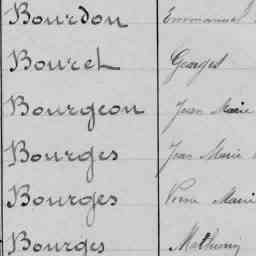 Bourdon Emmanuel
Bouret Georges
Bourgeon Jean Marie
Bourges Jean Marie
Bourges Pierre Marie
Bourges Mathurin